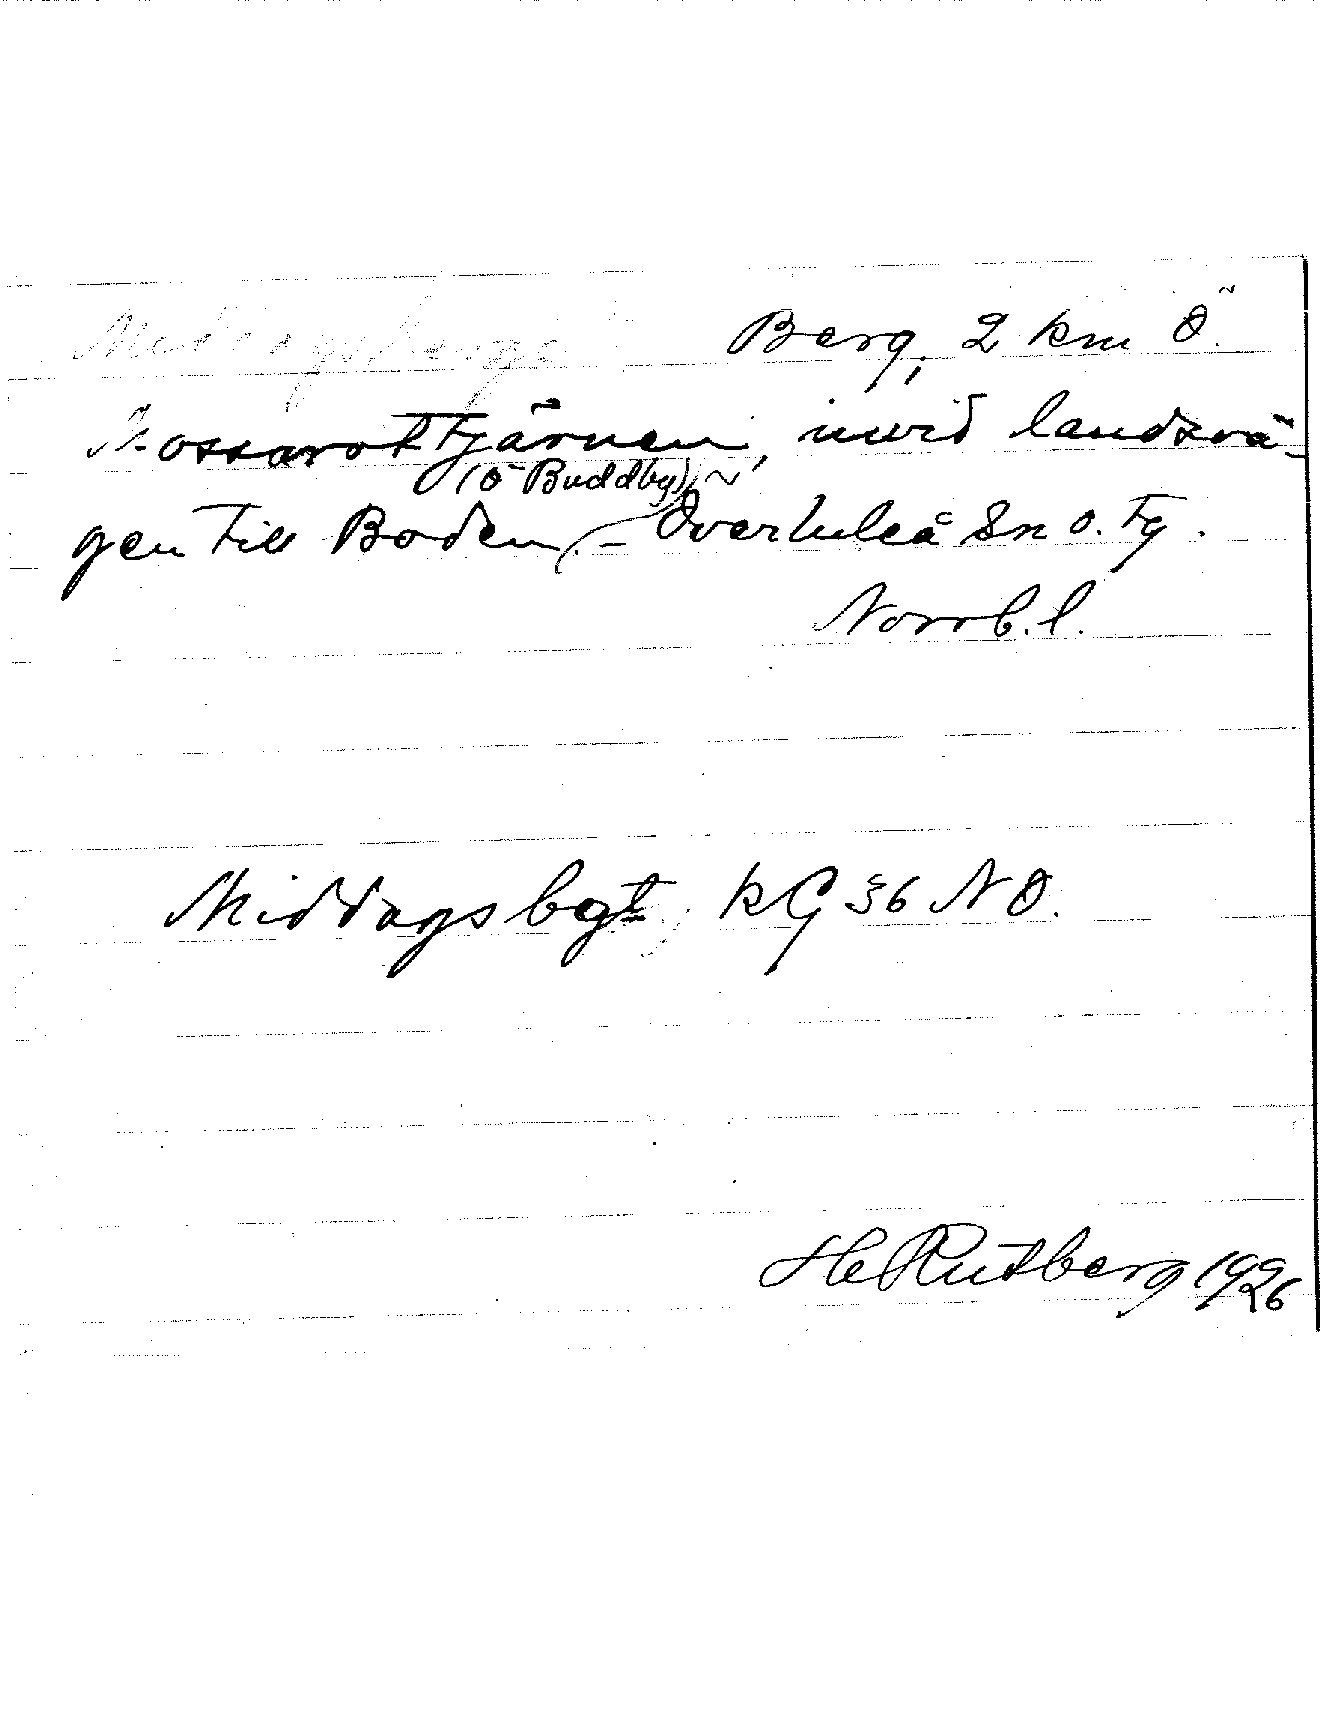 Berg, 2 km Ö.
Mossarottjärnen, invid landsvä-
(ö Buddby)
gen till Boden, - Överluleå Sn o. tg.
Norrb. l.
Middagsbgt KG 36 NO.
H Rutberg 1926